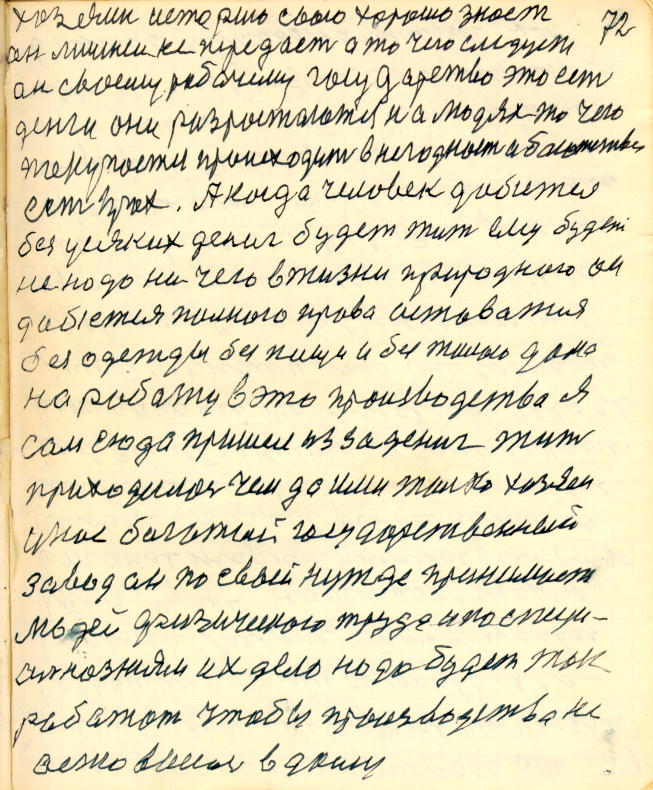 72
хозяин историю свою хорошо знает
он лишней не передает а то чего следует
он своему рабочему государство это ест
денги они разростаются на людях то чего
происходит в негодност и
ест крах. А когда человек добется
без усяких денег будет жит ему будет
не надо ни чего в жизни природного он
добется полного права оставатся
без одежды без пищи и без жилого дома
на работу в это производства я
сам сюда пришел из за денег жит
приходилос чем да или толко хозяен
у нас богатый государственный
завод он по своей нужде принимает
людей физического труда и по специ-
их дело надо будет так
работат чтобы производства не
в долгу